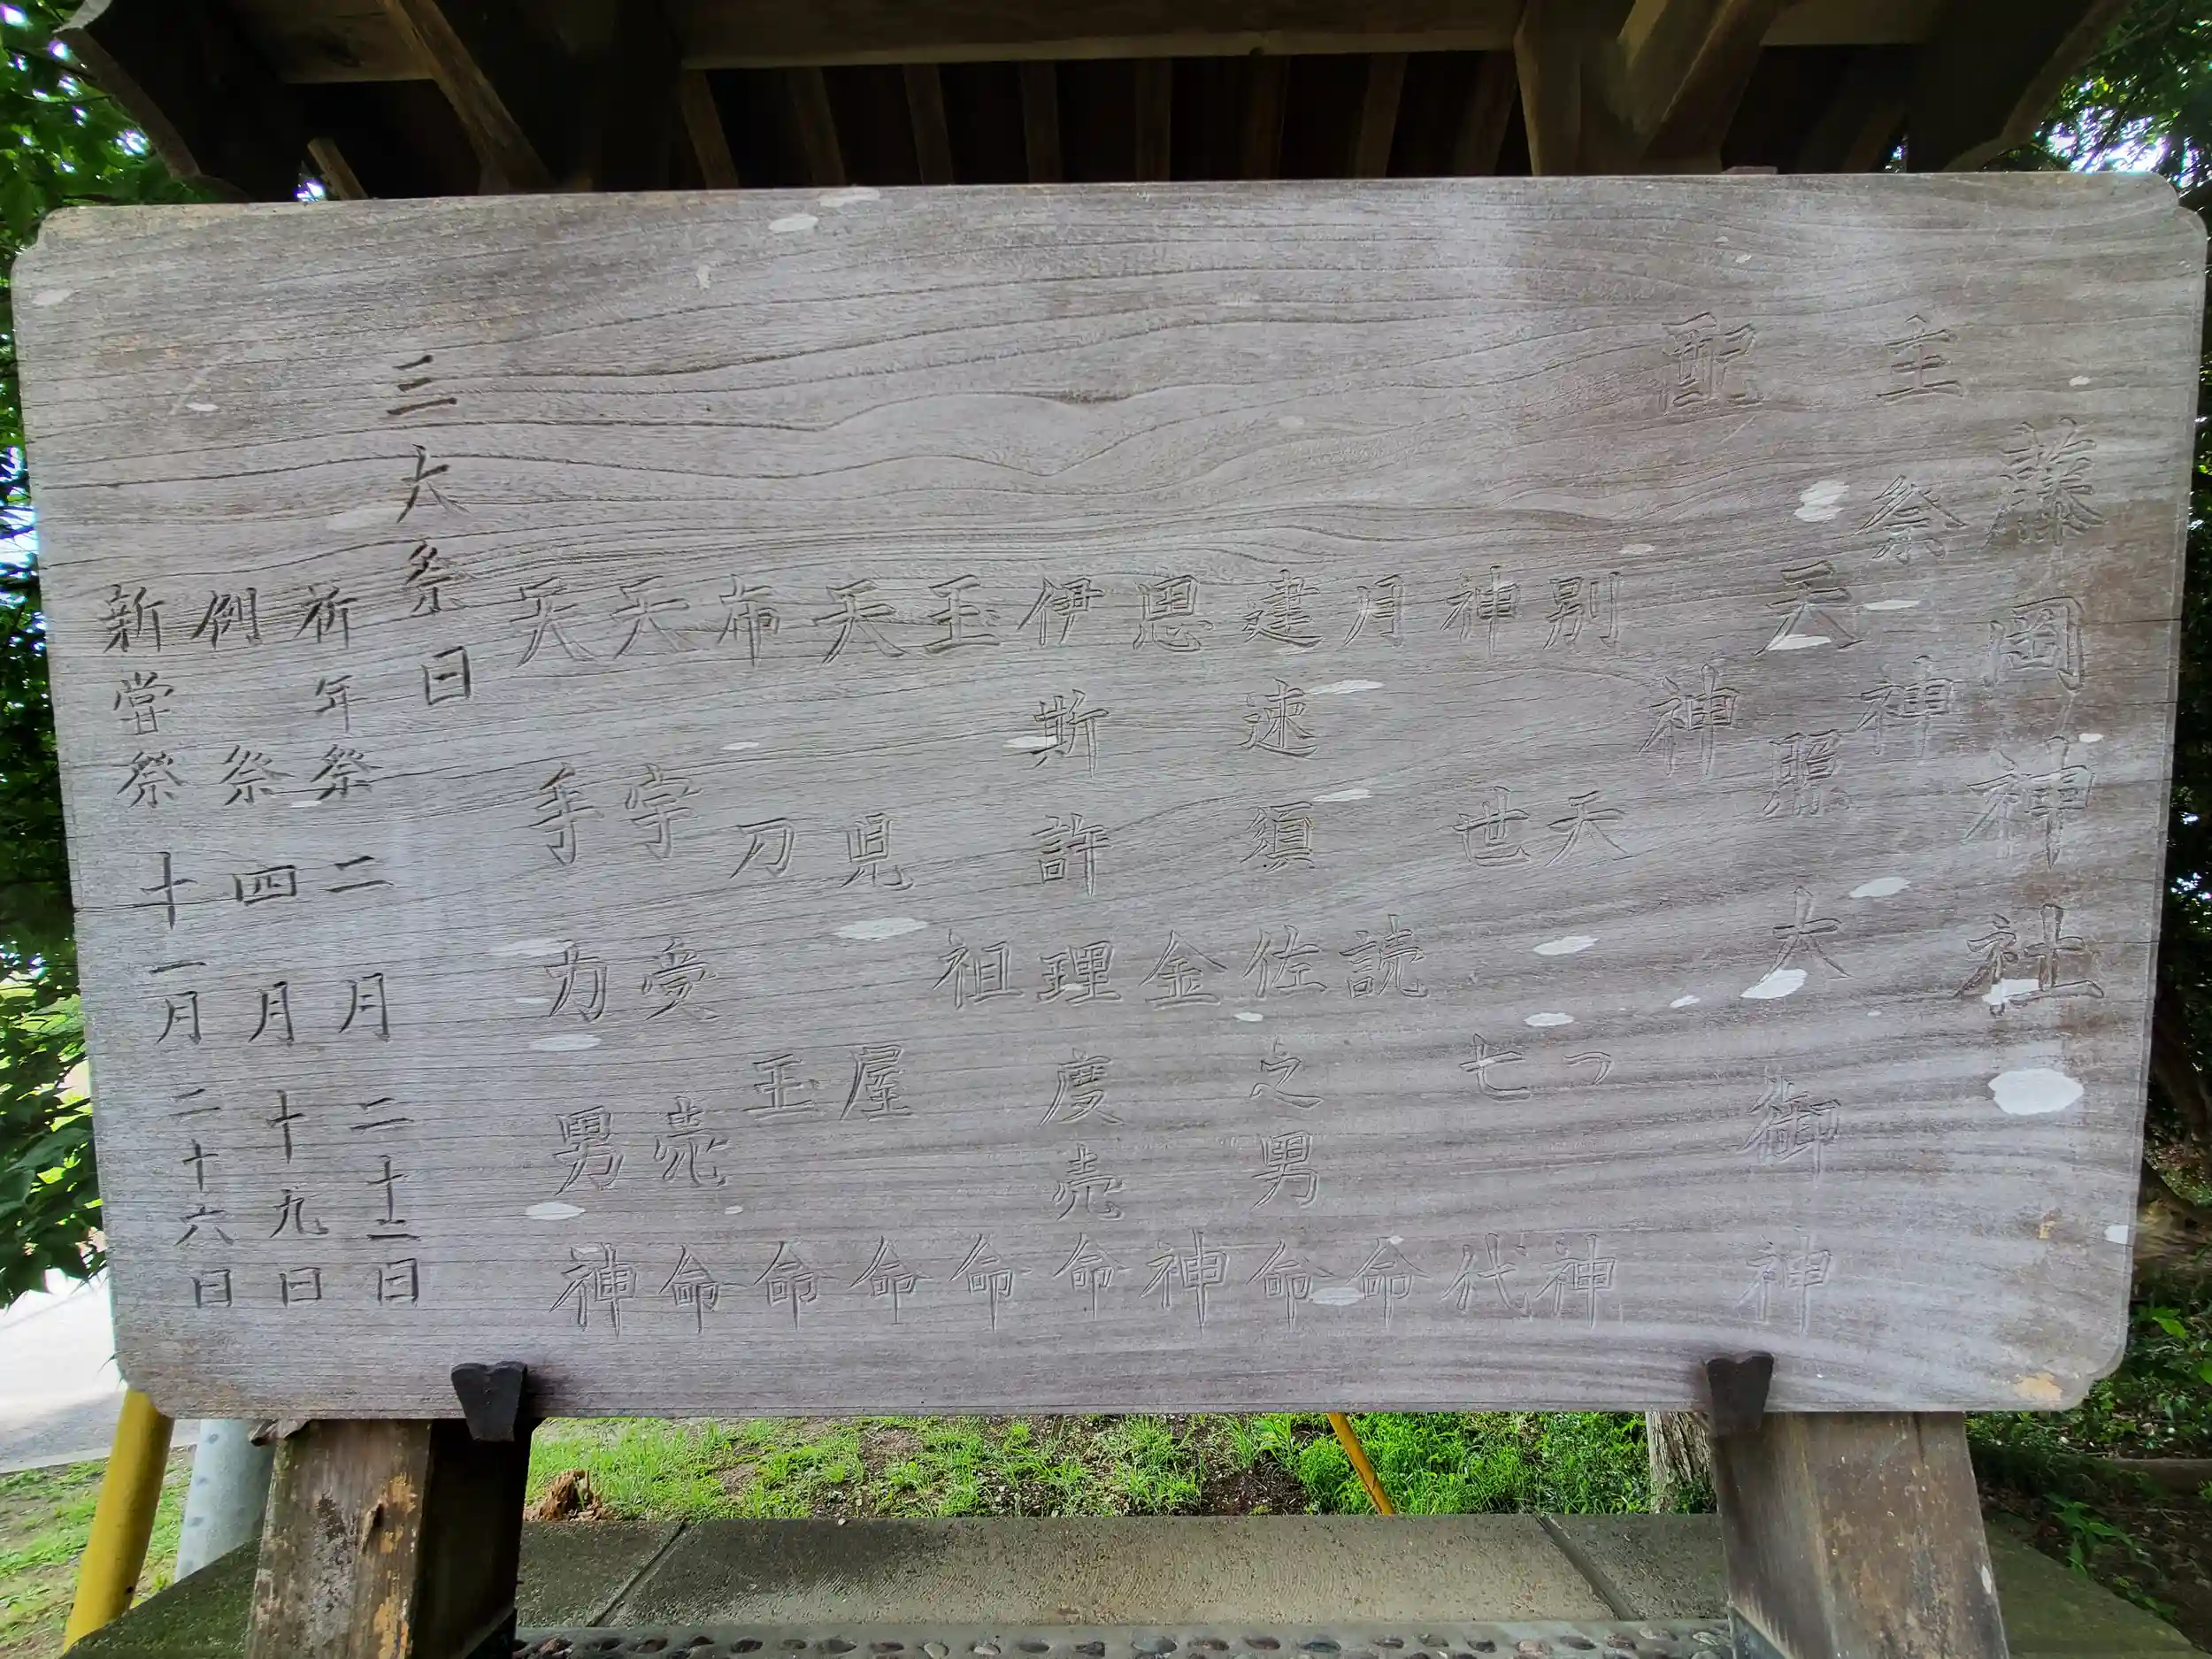 藤岡神社
主祭神
天照大御神
配神
別天つ神
神世七代
月読命
建速須佐之男命
思金神
伊斯許理度売命
玉祖命
天児屋命
布刀玉命
天宇受売命
天手力男神
三大祭日
祈年祭 二月二十二日
例祭 四月十九日
新嘗祭 十一月二十六日